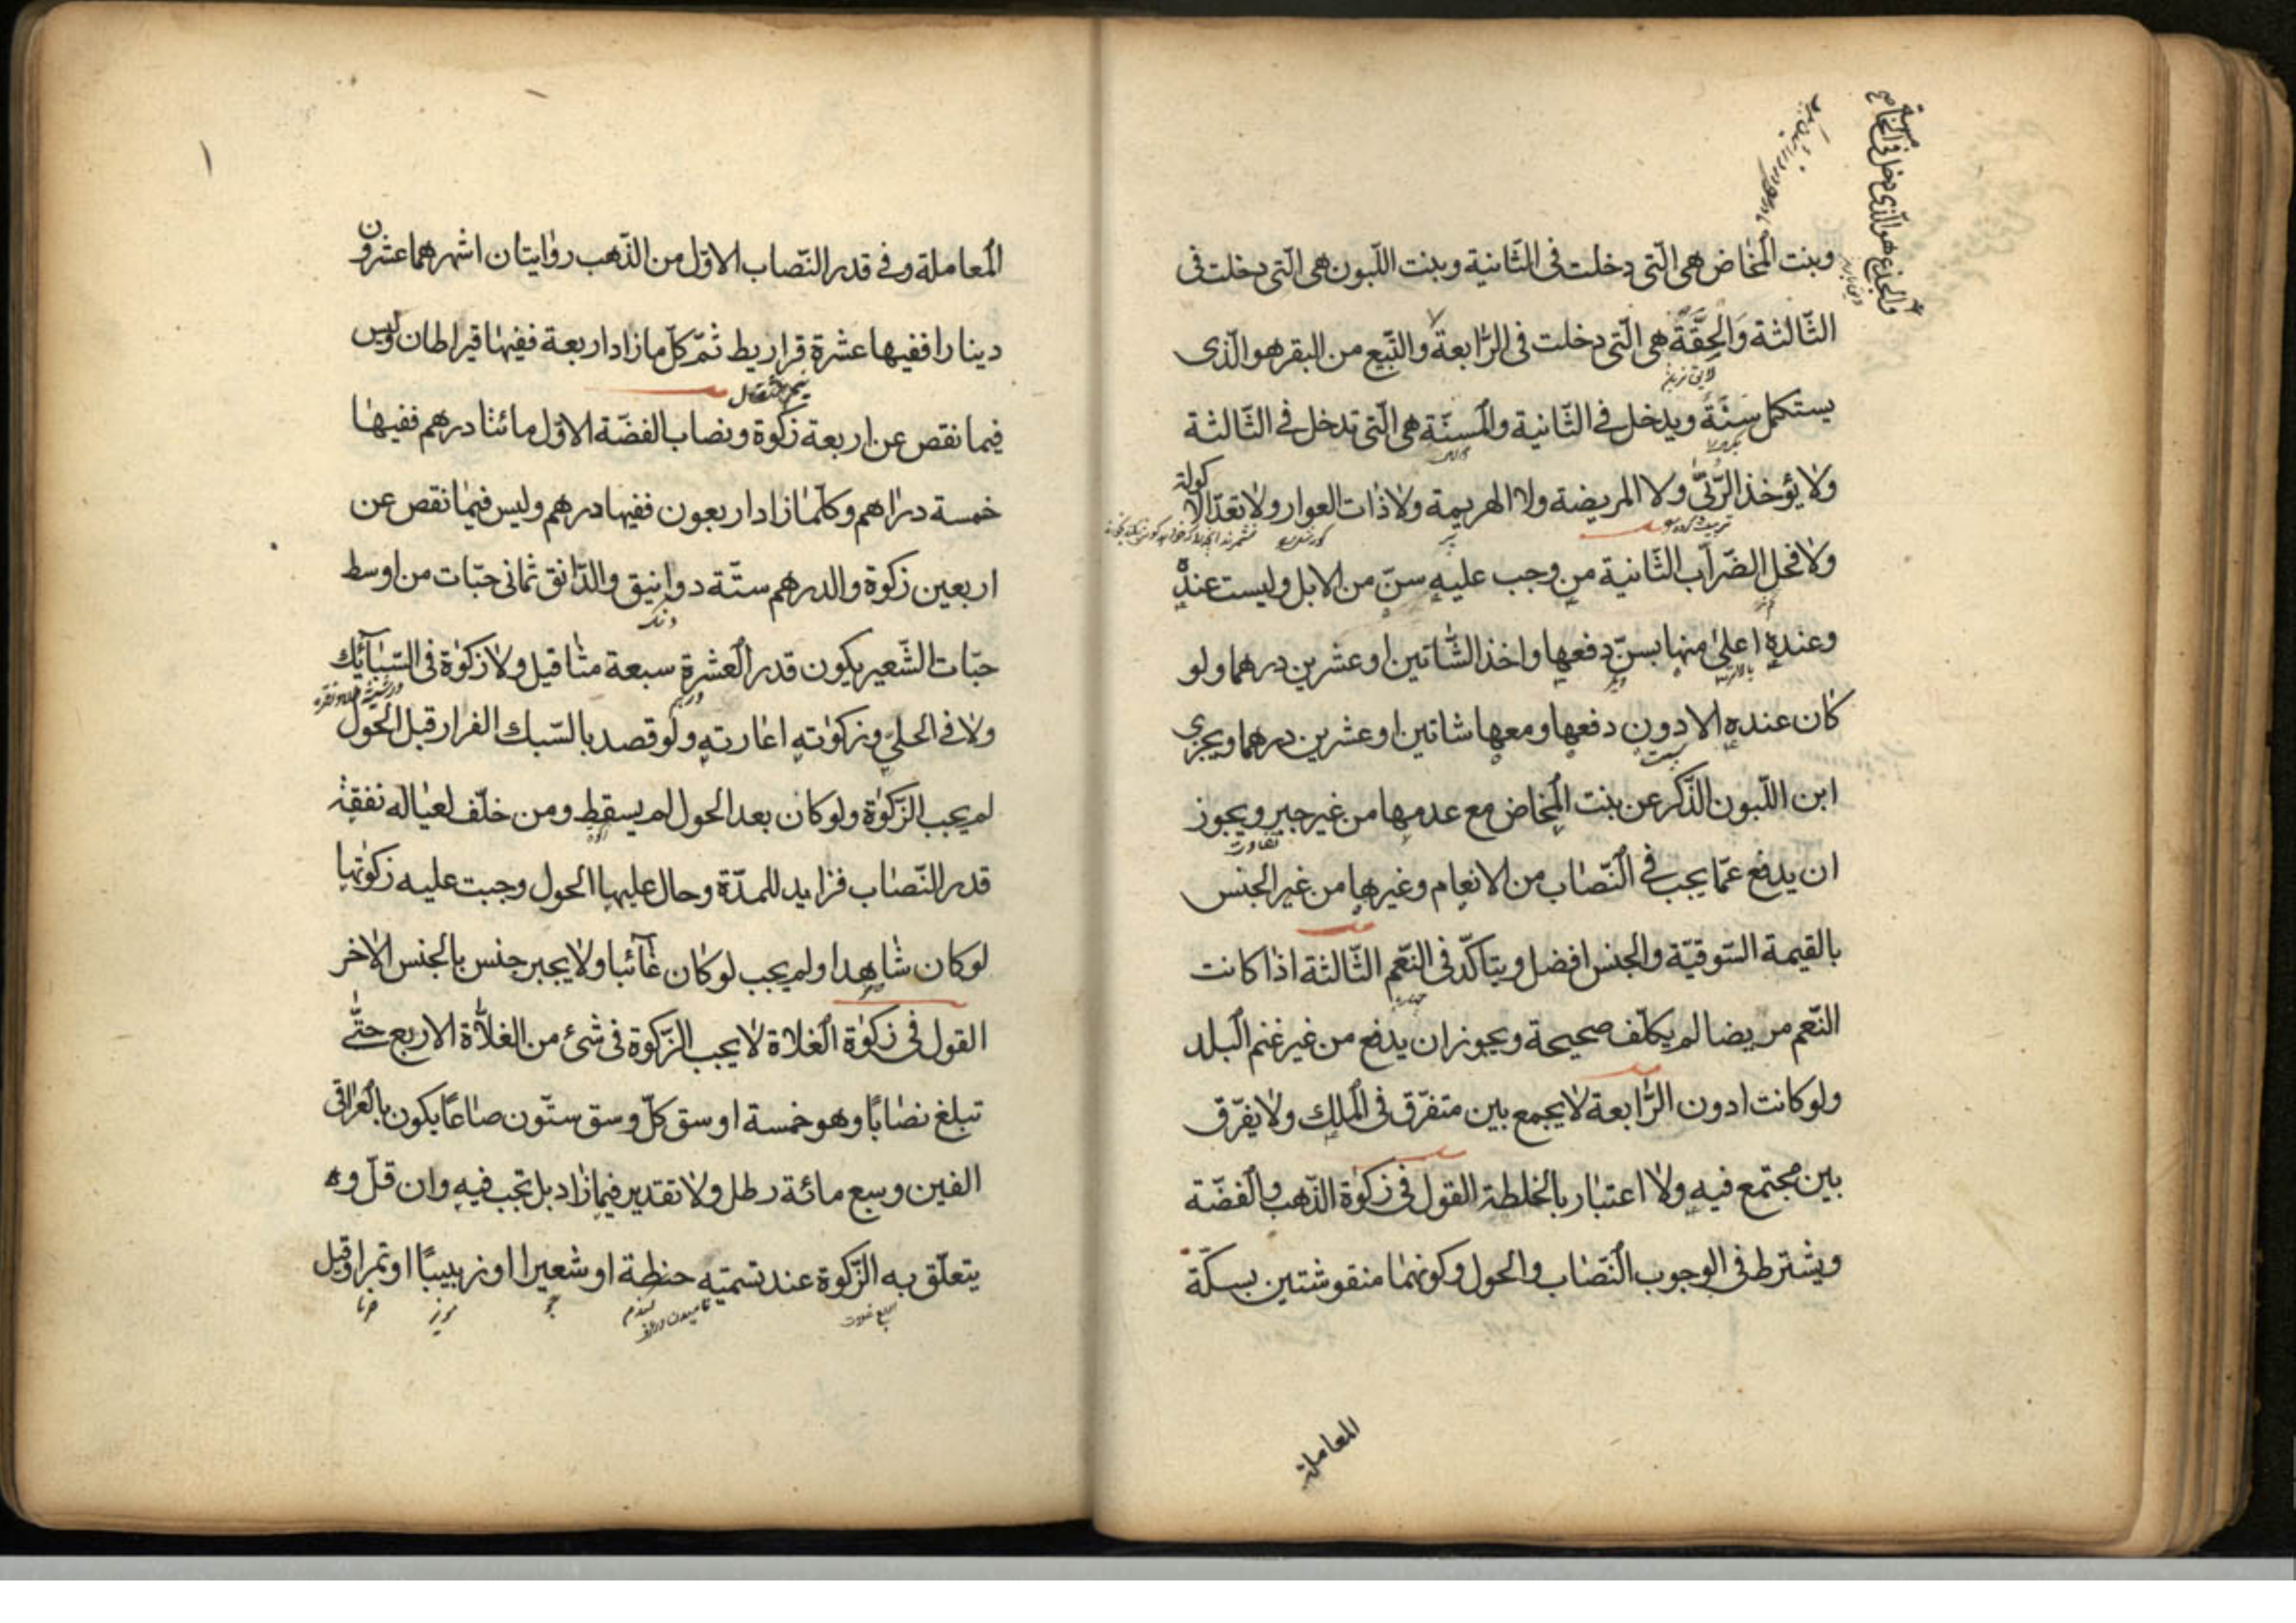 وبنت المخاض هى الّتى دخلت فى الثّانية وبنت اللّبون هى الّتى دخلت فى
الثّالثة وَالحِقَّةُ هى الّتى دخلت فى الرّابعة والتّبيع من البقر هو الّذى
يستكمل سنَةً ويدخل فى الثّانية والمسنّة هى الّتى تدخل فى الثّالثة
ولا يؤخذ الرّبّىٰ ولا المريضة ولا الهريمة ولا ذات العوار ولا تعدّ الاكولة
ولا فحل الضّراب الثّانية من وجب عليه سنّ من الابل وليست عنده
وعنده اعلىٰ منها بسنّ دفعها واخذ الشّاتين او عشرين درهما ولو
كان عنده الادون دفعها ومعها شاتين او عشرين درهما ويجزى
ابن اللّبون الذّكر عن بنت المخاض مع عدمها من غير جبر ويجوز
ان يدفع عمّا يجب فى النّصاب من الانعام وغيرها من غير الجنس
بالقيمة السّوقيّة والجنس افضل ويتاكّد فى النّعم الثّالثة اذا كانت
النّعم مريضا لم يكلّف صحيحة ويجوز ان يدفع من غير غنم البلد
ولو كانت ادون الرّابعة لا يجمع بين متفرّق فى الملك ولا يفرّق
بين مجتمع فيه ولا اعتبار بالخلطة القول فى زكوة الذّهب والفضّة
ويشترط فى الوجوب النّصاب والحول وكونهما منقوشتين بسكّة
المعاملة
والجذع هو الّذى دخل فى الخامسة
المعاملة وفى قدر النّصاب الاوّل من الذّهب روايتان اشهرهما عشرون
دينارا ففيها عشرة قراريط ثمّ كلّ ما زاد اربعة ففيها قيراطان وليس
نيم مثقال
فيما نقص عن اربعة زكوة ونصاب الفضّة الاوّل مائتا درهم ففيها
خمسة دراهم وكلّما زاد اربعون ففيها درهم وليس فيما نقص عن
اربعين زكوة والدرهم ستّة دوانيق والدّانق ثمانى حبّات من اوسط
حبّات الشّعير يكون قدر العشرة سبعة مثاقيل ولا زكوة فى السّبآئك
ولا فى الحلىّ وزكوته اعارته ولو قصد بالسّبك الفرار قبل الحول
لم يجب الزّكوة ولو كان بعد الحول لم يسقط ومن خلّف لعياله نفقة
قدر النّصاب فزايد للمدّة وحال عليها الحول وجبت عليه زكوتها
لو كان شاهدا ولم يجب لو كان غآئبا ولا يجبر جنس بالجنس الاخر
القول فى زكوة الغلاة لا يجب الزّكوة فى شئ من الغلّاة الاربع حتّى
تبلغ نصابًا وهو خمسة اوسق كلّ وسق ستّون صاعًا يكون بالعراقى
الفين وسبع مائة رطل ولا تقدير فيما زاد بل تجب فيه وان قلّ و
يتعلّق به الزّكوة عند تسميته حنطة او شعيرا او زبيبًا او تمرا وقيل
گندم
جو
مويز
خرما